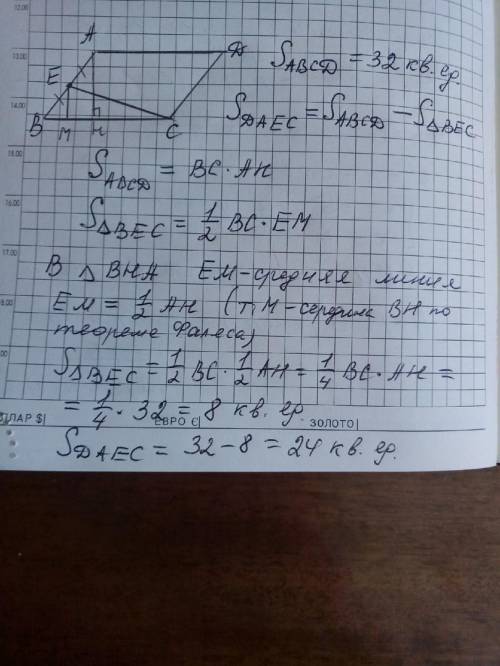 12.00
13.00
14.00
15.00
16.00
17.00
18.00
A
D
E
B
M
H
C
S_ABCD = 32 кв. ед.
S_DAEC = S_ABCD − S_ΔBEC
S_ABCD = BC · AH
S_ΔBEC = 1/2 BC · EM
В Δ BHA EM-средняя линия
EM = 1/2 AH (т. M-середина BH по
теореме Фалеса)
S_ΔBEC = 1/2 BC · 1/2 AH = 1/4 BC · AH =
= 1/4 · 32 = 8 кв. ед.
ЛАР $| ЕВРО €| ЗОЛОТО|
S_DAEC = 32 − 8 = 24 кв. ед.